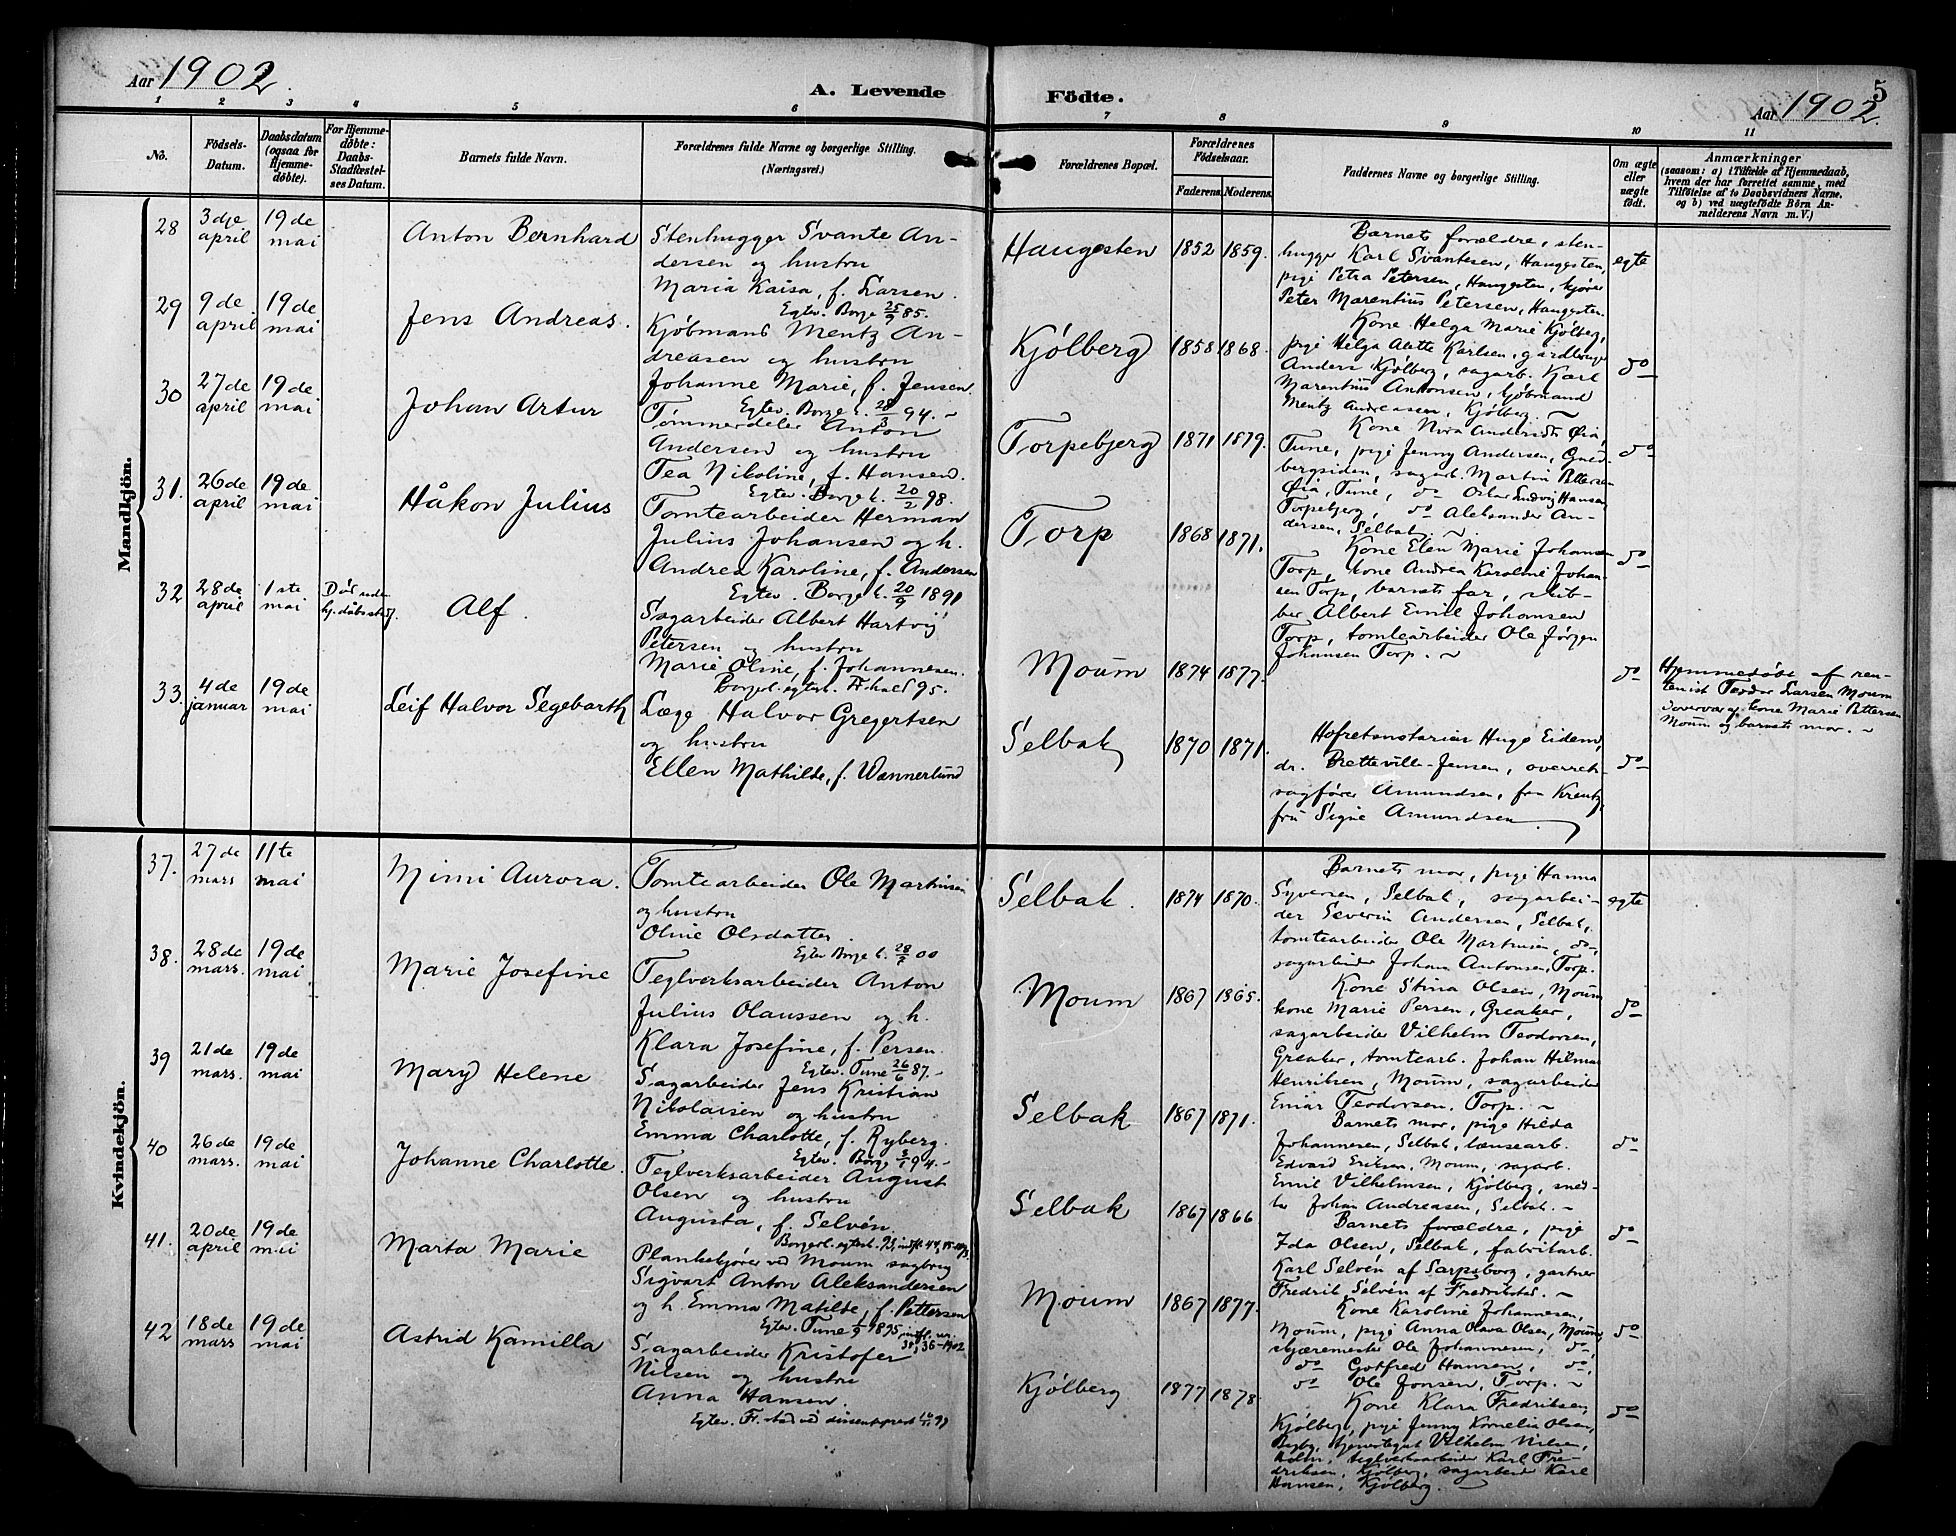 Aar 1902.
A. Levende
Födte.
5
Aar 1902.
1 2 3 4 5 6 7 8 9 10 11
No.
Födsels-
Datum.
Daabsdatum
(ogsaa for
Hjemme-
döbte).
For Hjemme-
döbte:
Daabs-
Stadfæstel-
ses Datum.
Barnets fulde Navn.
Forældrenes fulde Navne og borgerlige Stilling.
(Næringsvei.)
Forældrenes Bopæl.
Forældrenes
Födselsaar.
Faderens. Moderens.
Faddernes Navne og borgerlige Stilling.
Om ægte
eller
uægte
födt.
Anmærkninger
(saasom: a) i Tilfælde af Hjemmedaab,
hvem der har forrettet samme, med
Tilföielse af to Daabsvidners Navne.
og b) ved uægtefödte Börn An-
melderens Navn m. V.)
Mandkjön.
28
3dje
april
19de
mai
Anton Bernhard
Stenhugger Svante An-
dersen og hustru
Maria Kaisa, f. Larsen.
Egtev. Borge 25/9 85.
Haugesten
1852 1859.
Barnets forældre, sten-
hugger Karl Svantesen, Haugesten,
pige Petra Petersen, Haugesten, kjører
Peter Marentius Petersen, Haugesten.
egte
29
9de
april
19de
mai
Jens Andreas.
Kjøbmand Mentz An-
dreasen og hustru
Johanne Marie, f. Jensen.
Egtev. Borge k. 28/3 94.
Kjølberg
1858 1868.
Kone Helga Marie Kjølberg,
pige Helga Alette Karlsen, gardbruger
Anders Kjølberg, sagarb. Karl
Marentius Antonsen, kjøbmand
Mentz Andreasen, Kjølberg.
do
30
27de
april
19de
mai
Johan Artur
Tømmerdeler Anton
Andersen og hustru
Tea Nikoline, f. Hansen.
Egtev. Borge k. 20/2 98.
Torpebjerg
1871 1879.
Kone Nora Øia,
Tune, pige Jenny Andersen,
bergsiden, sagarb. Martin Pettersen
Øia, Tune, do Oskar Ludvig Hansen
Torpebjerg, do Aleksander An-
dersen, Selbak.
do
31.
26de
april
19de
mai
Håkon Julius
Tomtearbeider Herman
Julius Johansen og h.
Andrea Karoline, f. Andersen
Egtev. Borge k. 20/9 1891
Torp
1868 1871.
Kone Elen Marie Johansen
Torp, kone Andrea Karoline Johan-
sen Torp, barnets far, slib-
ber Albert Emil Johansen
Torp, tomtearbeider Ole Jørgen
Johansen Torp.
do
32
28de
april
1ste
mai
Død uden
hj.dåbs stadf.
Alf.
Sagarbeider Albert Hartvig
Petersen og hustru
Marie Oline, f. Johannesen.
Borgerl. egtev. Fr.hald 95.
Moum
1874 1877.
do
Hjemmedøbt af
Teodor Larsen Moum
overvær af kone Marie Pettersen
Moum og barnets mor.
33.
4de
januar
19de
mai
Leif Halvor Segebarth
Læge Halvor Gregertsen
og hustru
Ellen Mathilde, f. Wennerlund
Selbak
1870 1871.
Hofretsnotarius Hugo Eidem,
dr. Bretteville-Jensen, overrets-
sagfører Amundsen, fru Kreutz,
fru Signe Amundsen
do
Kvindekjön.
37.
27de
mars
11te
mai
Mimi Aurora.
Tomtearbeider Ole Martinsen
og hustru
Oline Olsdatter
Egtev. Borge k. 28/ 00
Selbak.
1874 1870.
Barnets mor, pige Hanna
Syversen, Selbak, sagarbei-
der Severin Andersen, Selbak,
tomtearbeider Ole Martinsen, do,
sagarbeider Johan Antonsen, Torp.
egte
38.
28de
mars.
19de
mai
Marie Josefine
Teglverksarbeider Anton
Julius Olaussen og h.
Klara Josefine, f. Persen.
Egtev. Tune 26/6 87.
Moum
1867 1865.
Kone Stina Olsen, Moum
kone Marie Persen, Greaker,
sagarbeider Vilhelm Teodorsen,
Greaker, tomtearb. Johan Hilmar
Henriksen, Moum, sagarbeider
Einar Teodorsen, Torp.
do
39
21de
mars.
19de
mai
Mary Helene
Sagarbeider Jens Kristian
Nikolaisen og hustru
Emma Charlotte, f. Ryberg.
Egtev. Borge 5/1 94.
Selbak
1867 1871.
Barnets mor, pige Hilda
Johannesen, Selbak, lænsearb.
Edvard Eriksen, Moum, sagarb.
Emil Vilhelmsen, Kjølberg, sned-
ker Johan Andreasen, Selbak.
do
40
26de
mars.
19de
mai
Johanne Charlotte.
Teglverksarbeider August
Olsen og hustru
Augusta, f. Selvén.
Borgerl. egtev. 93,
Selbak
1867 1866
Barnets forældre, pige
Ida Olsen, Selbak, fabrikarb.
Karl Selvén af Sarpsborg, gartner
Fredrik Selvén af Fredrikstad.
do
41.
20de
april
19de
mai
Marta Marie
Plankekjører ved Moum sagbrug
Sigvart Anton Aleksandersen
og h. Emma Matilde, f. Pettersen
Egtev. Tune 1895,
Moum
1867 1877.
Kone Karoline Johannesen,
Moum, pige Anna Olava Olsen, Moum,
skjæremester Ole Johannesen, do,
do Gotfred Hansen, do,
do Ole Jonsen, Torp.
do
42
18de
mars
19de
mai
Astrid Kamilla
Sagarbeider Kristofer
Nilsen og hustru
Anna Hansen.
Egtev. Fr.stad ved
Kjølberg
1877 1878.
Kone Klara Fredriksen,
Kjølberg, pige Jenny Kornelia Olsen,
Vilhelm Nilsen,
teglverksarbeider Karl Fre-
driksen, Kjølberg, sagarbeid. Karl
Hansen, Kjølberg.
do